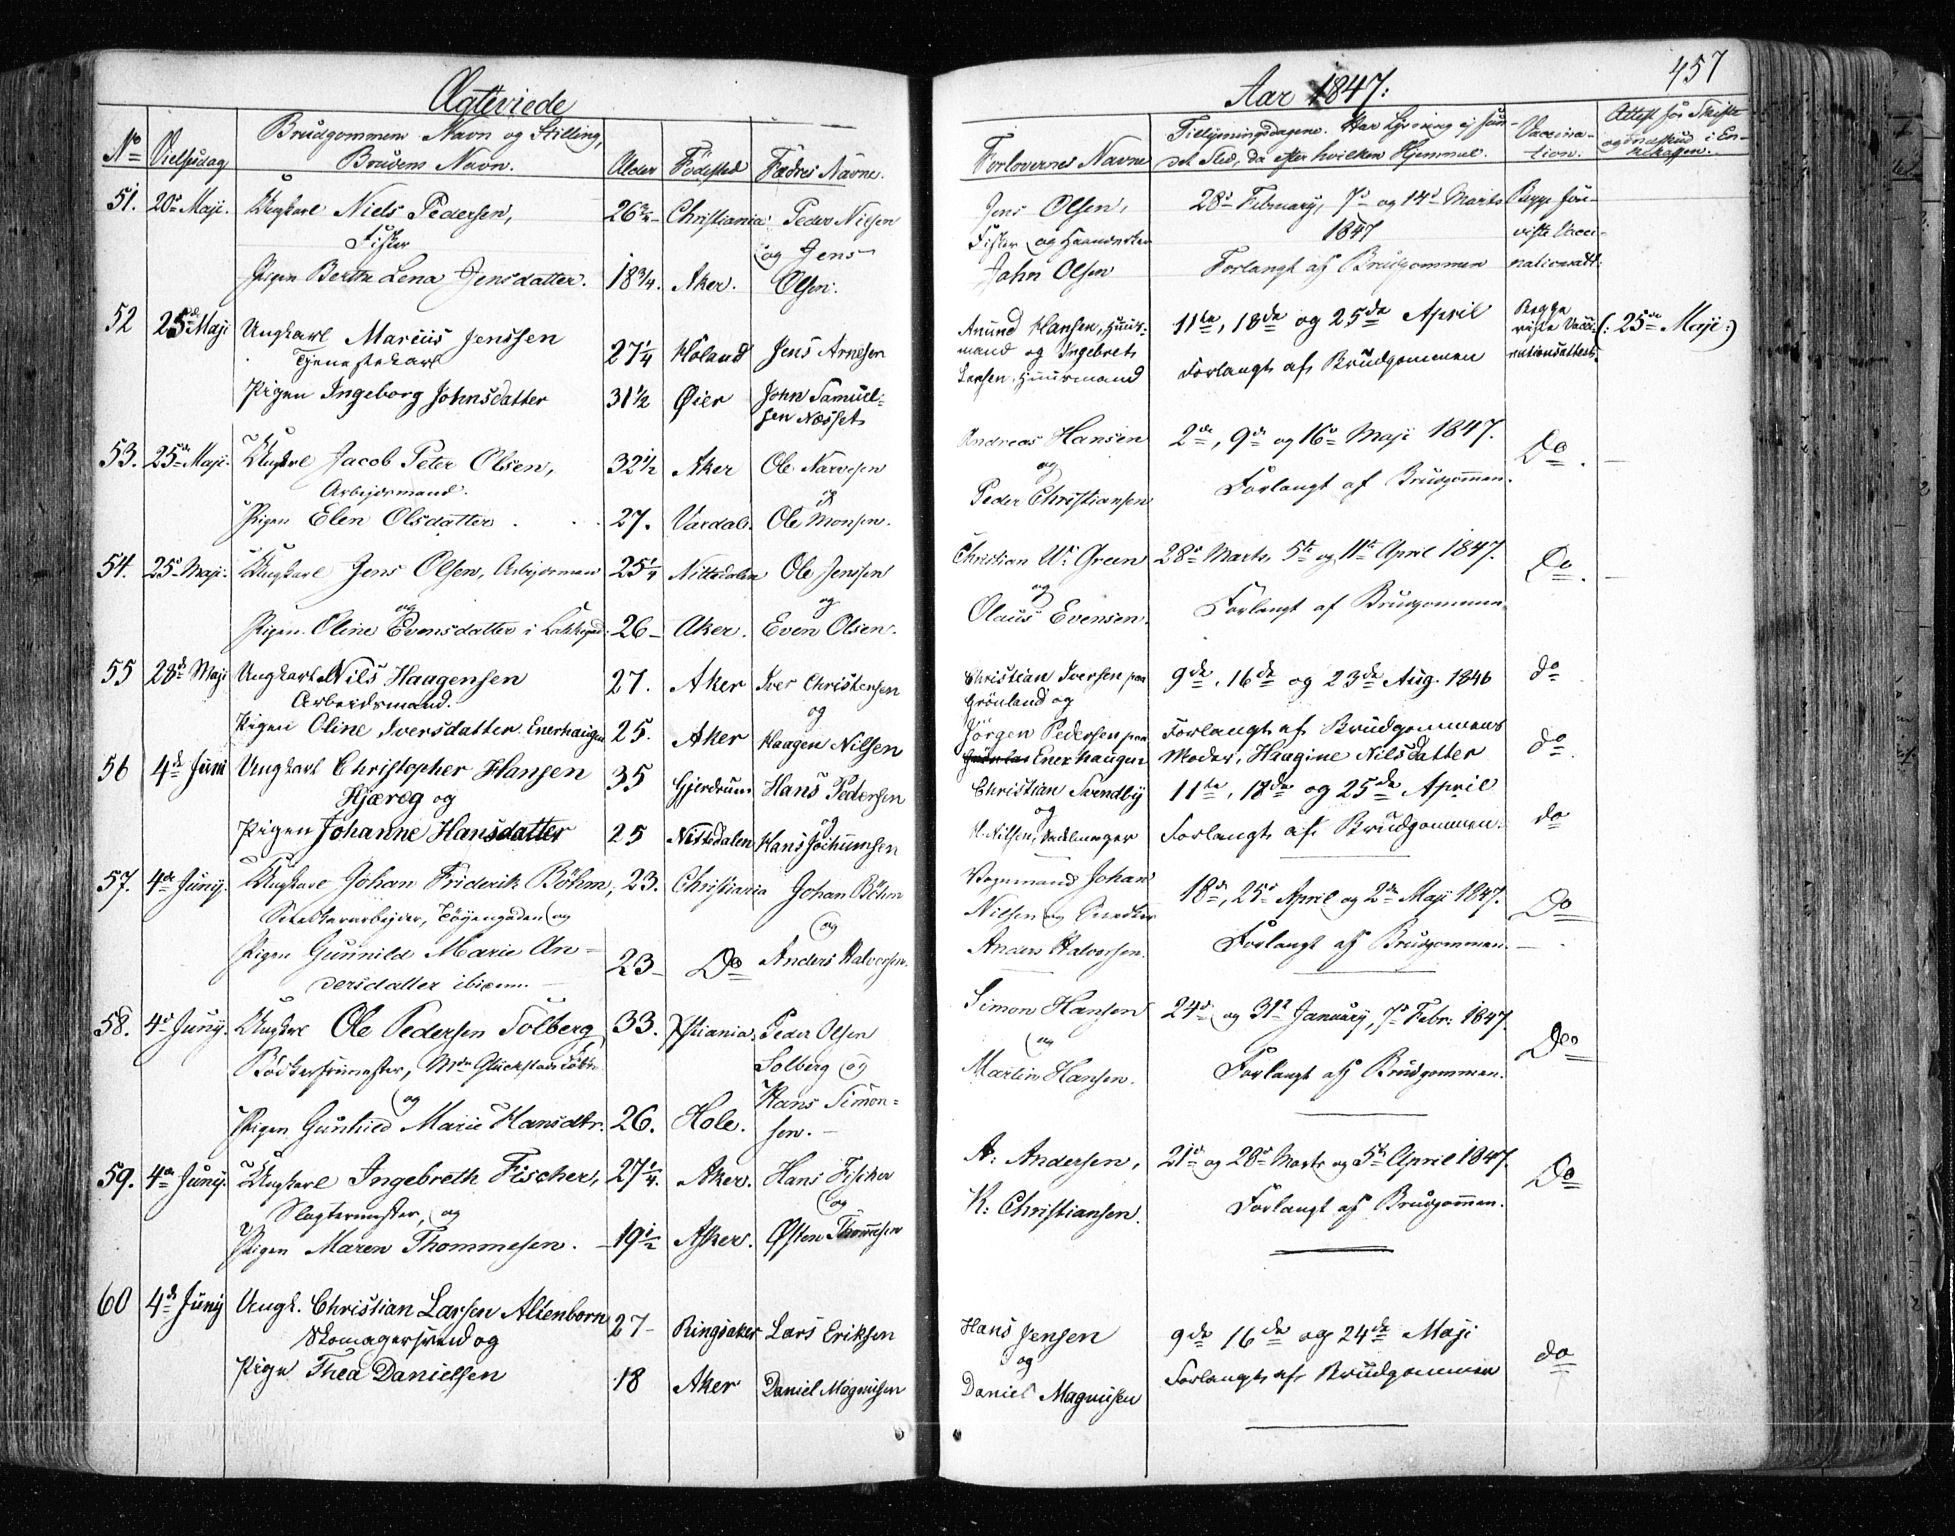 Ægteviede
Aar 1847:
457
No Vielsesdag Brudgommens Navn og Stilling, Brudens Navn. Alder Födested Fædres Navne.
Forlovernes Navne Tillysningsdagene. Har Lysning ej fundet Sted, da efter hvilken Hjemmel. Vaccination. Attest for Skifte
51. 20de Maji. Ungkarl Niels Pedersen, 26 3/4 Christiania Peder Nielsen
Fisker og Jens
Pigen Berthe Lena Jensdatter. 18 3/4. Aker. Olsen.
Jens Olsen, 28de February, 7de og 14de Marts Begge fore-
Fisker og 1847 viste Vacci-
John Olsen Forlangt af Brudgommen nationsatt:
52 25de Maji Ungkarl Marcius Jenssen
Tjenestekarl 27 1/4 Höland Jens Arnesen
Pigen Ingeborg Johnsdatter 31 1/2 Øier John Samuel-
sen Næsset
Amund Hansen, Huus- 11te, 18de og 25de April Begge
mand og Ingebret viste Vacci- (: 25de Maji :)
Larsen, Huusmand Forlangt af Brudgommen nationsattest.
53. 25de Maji. Ungkarl Jacob Peter Olsen, 32 1/2 Aker Ole Narvesen
Arbejdsmand. og
Pigen Elen Olsdatter 27. Vardal. Ole Monsen.
Andreas Hansen 2de, 9de og 16de Maji 1847. Do.
og
Peder Christiansen Forlangt af Brudgommen.
54. 25de Maji. Ungkarl Jens Olsen, Arbejdsmand 25 1/4 Nittedalen Ole Jenssen
og og
Pigen Oline Evensdatter i 26 Aker. Even Olsen.
Christian Green 28de Marts 5te og 11te April 1847. Do.
og
Olaus Evensen. Forlangt af Brudgommen.
55 28de Maji Ungkarl Nils Haagensen 27. Aker Iver Christensen
Arbeidsmand. og
Pigen Oline Iversdatter Enerhaugen 25. Aker Haagen Nilsen
Christian Iversen paa 9de, 16de og 23de Aug. 1846 do
Grönland og
Jörgen Pedersen paa Forlangt af Brudgommens
Enerhaugen Moder, Haagine Nilsdatter do.
56 4de Juni Ungkarl Christopher Hansen 35 Gjerdrum Hans Pedersen
Kjæreg og og
Pigen Johanne Hansdatter 25 Nittedalen Hans Jochumsen
Christian Svendby 11te, 18de og 25de April
og
H. Nilsen, Sadlmager Forlangt af Brudgommen. do
57. 4de Junij. Ungkarl Johan Friderik Böhm, 23. Christiania Johan Böhm
Töyengaden og og
Pigen Gunnild Marie An- 23 Do Anders Halvorsen.
dersdatter ibidem.
Vognmand Johan 18de, 25de April og 2de Maji 1847. Do
Nilsen og
Anders Halvorsen. Forlangt af Brudgommen.
58. 4de Junij. Ungkarl Ole Pedersen Solberg 33. Xstiania. Peder Olsen
Bödkermester, Solberg og
og Hans Simon-
Pigen Gunhild Marie Hansdtr. 26. Hole. sen.
Simon Hansen 24de og 31te January, 7de Febr: 1847. Do
og
Martin Hansen. Forlangt af Brudgommen.
59. 4de Junij. Ungkarl Ingebreth Fischer, 27 1/4. Aker. Hans Fischer
Slagtermester, og og
Pigen Maren Thommesen. 19 1/2 Asker. Østen Thommesen
A: Andersen, 21de og 28de Marts og 5te April 1847. Do
K: Christiansen. Forlangt af Brudgommen.
60 4de Junij Ungk. Christian Larsen Altenborn 27 Ringsaker Lars Eriksen
Skomagersvend og
Pige Thea Danielsen 18 Aker Daniel Magnusen
Hans Jensen 9de 16de og 24de Maji
og do
Daniel Magnusen Forlangt af Brudgommen